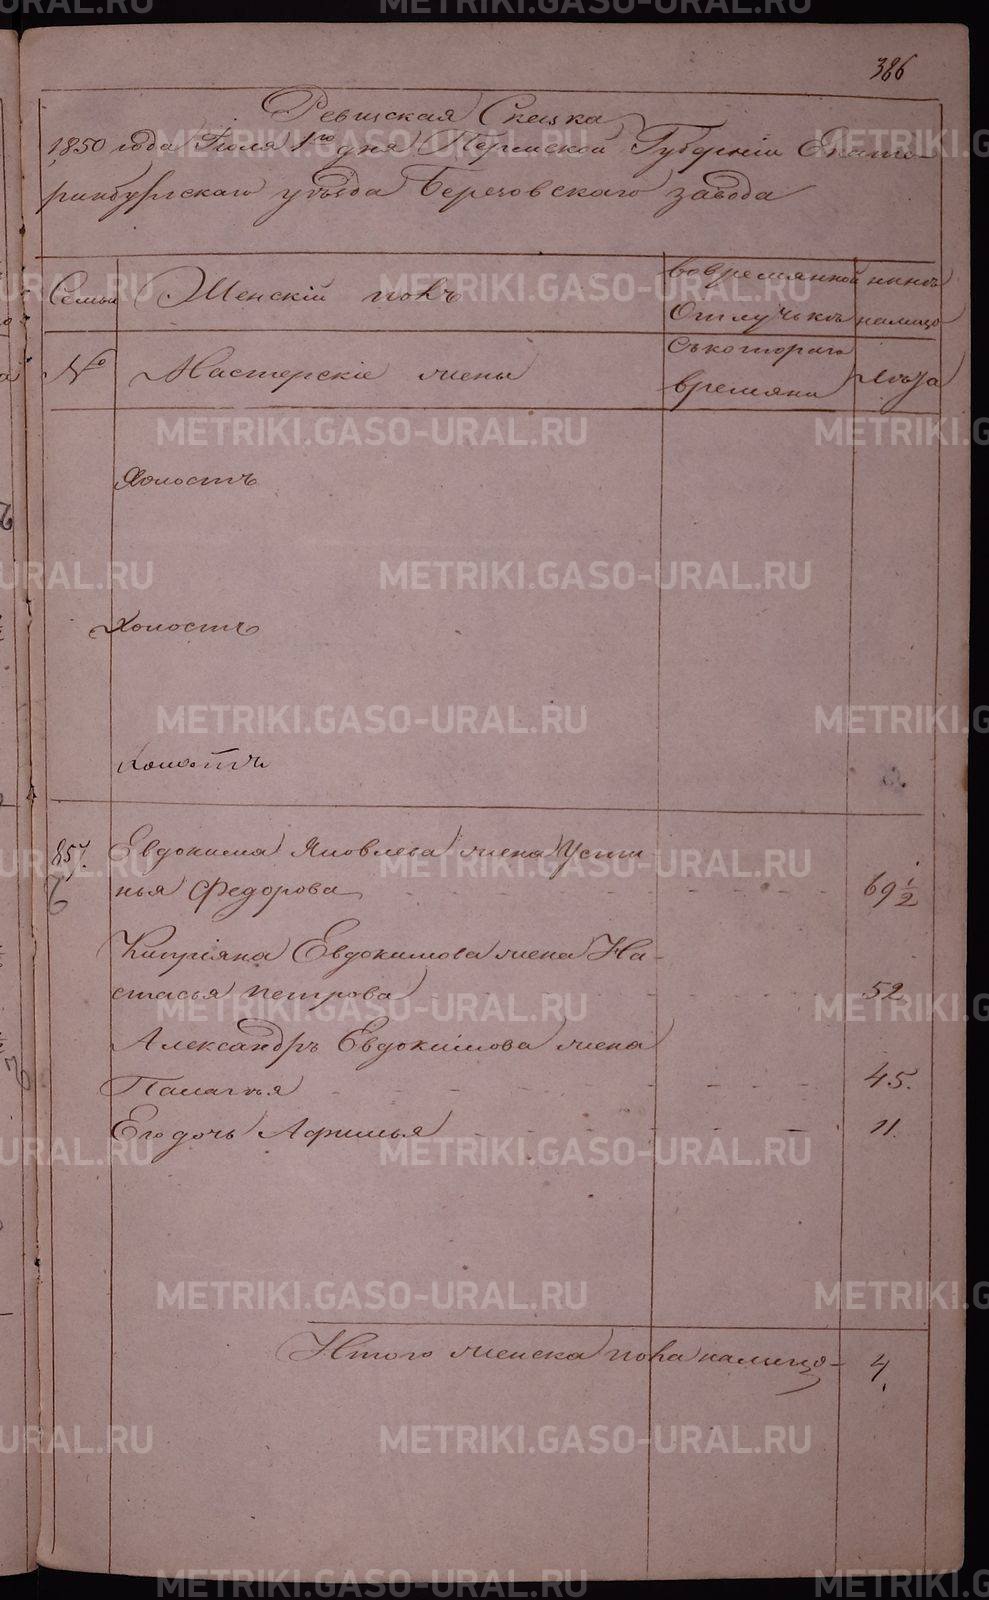 386
Ревизская Сказка
1850 года Іюля 1го дня Пермской Губерніи Екате
ринбургскаго уѣзда Березовскаго завода
Семьи Женскій полъ вовремянной нынѣ
Отлучькѣ налицо
№ Мастерскіе жены съкотораго
времяни Лѣта
Холостъ
Холостъ
Холостъ
857. Евдокима Яковлева жена Усти
нья Федорова 69 1/2
6
Кипріяна Евдокимова жена На-
стасья Петрова 52
Александръ Евдокимова жена
Палагѣя 45.
Его дочь Афимья 11.
Итого женска пола налицо - 4
METRIKI.GASO-URAL.RU